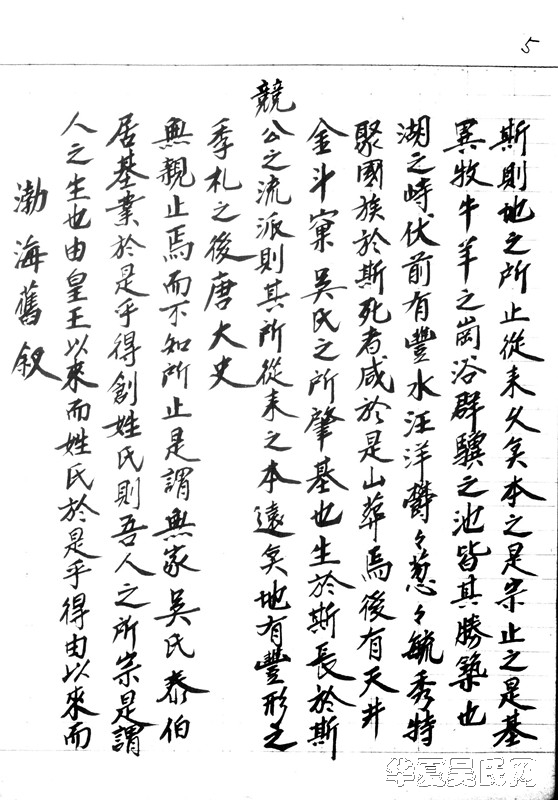 5
渤海舊叙
人之生也由皇王以來而姓氏於是乎得由以來而
居基業於是乎得創姓氏則吾人之所宗是謂
無親止焉而不知所止是謂無家吳氏泰伯
季札之後唐大史
競公之流派則其所從来之本遠矣地有豐形之
金斗寮吳氏之所肇基也生於斯長於斯
聚國族於斯死者咸於是山葬焉後有天井
湖之峙伏前有豐水汪洋欝々葱々毓秀特
異牧牛羊之崗浴群驥之池皆其勝築也
斯則地之所止從来久矣本之是宗止之是基
华夏吴氏网